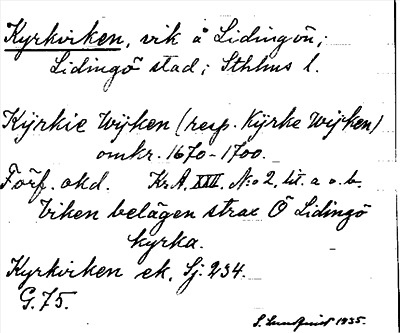 Kyrkviken, vik å Lidingön;
Lidingö stad; Sthlms l.
Kÿrkie Wijken (resp. Kÿrke Wijken)
omkr. 1670-1700.
Förf. okd. Kr.A. XXII. N:o 2. lit. a o. b.
Viken belägen strax Ö Lidingö
kyrka.
Kyrkviken ek. Sj. 234.
G. 75.
S. Lundquist 1935.